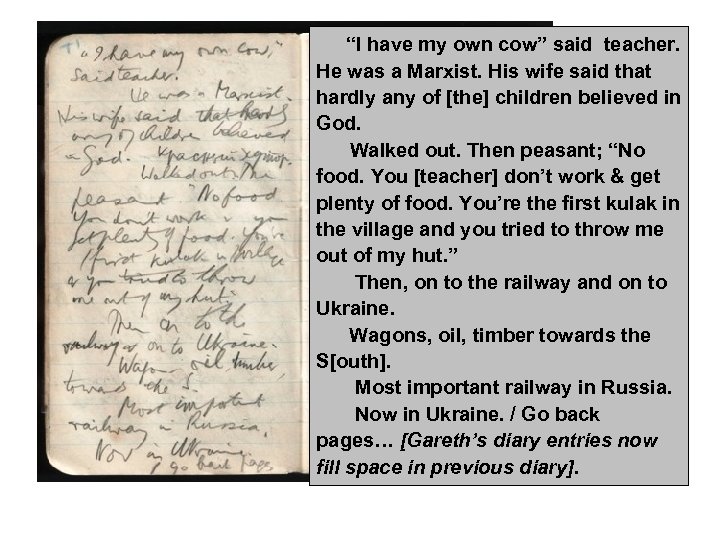 "I have my own cow,"
said teacher.
He was a Marxist.
His wife said that hardly
any of children believed
in God.
Walked out. Then
peasant "No food
You don't work & you
get plenty of food. You're
first kulak in village
& you tried to throw
me out of my hut."
Then on to the
railway & on to Ukraine.
Wagons, oil, timber,
towards the S.
Most important
railway in Russia.
Now in Ukraine.
/ go back pages
“I have my own cow” said teacher.
He was a Marxist. His wife said that
hardly any of [the] children believed in
God.
Walked out. Then peasant; “No
food. You [teacher] don’t work & get
plenty of food. You’re the first kulak in
the village and you tried to throw me
out of my hut.”
Then, on to the railway and on to
Ukraine.
Wagons, oil, timber towards the
S[outh].
Most important railway in Russia.
Now in Ukraine. / Go back
pages… [Gareth’s diary entries now
fill space in previous diary].